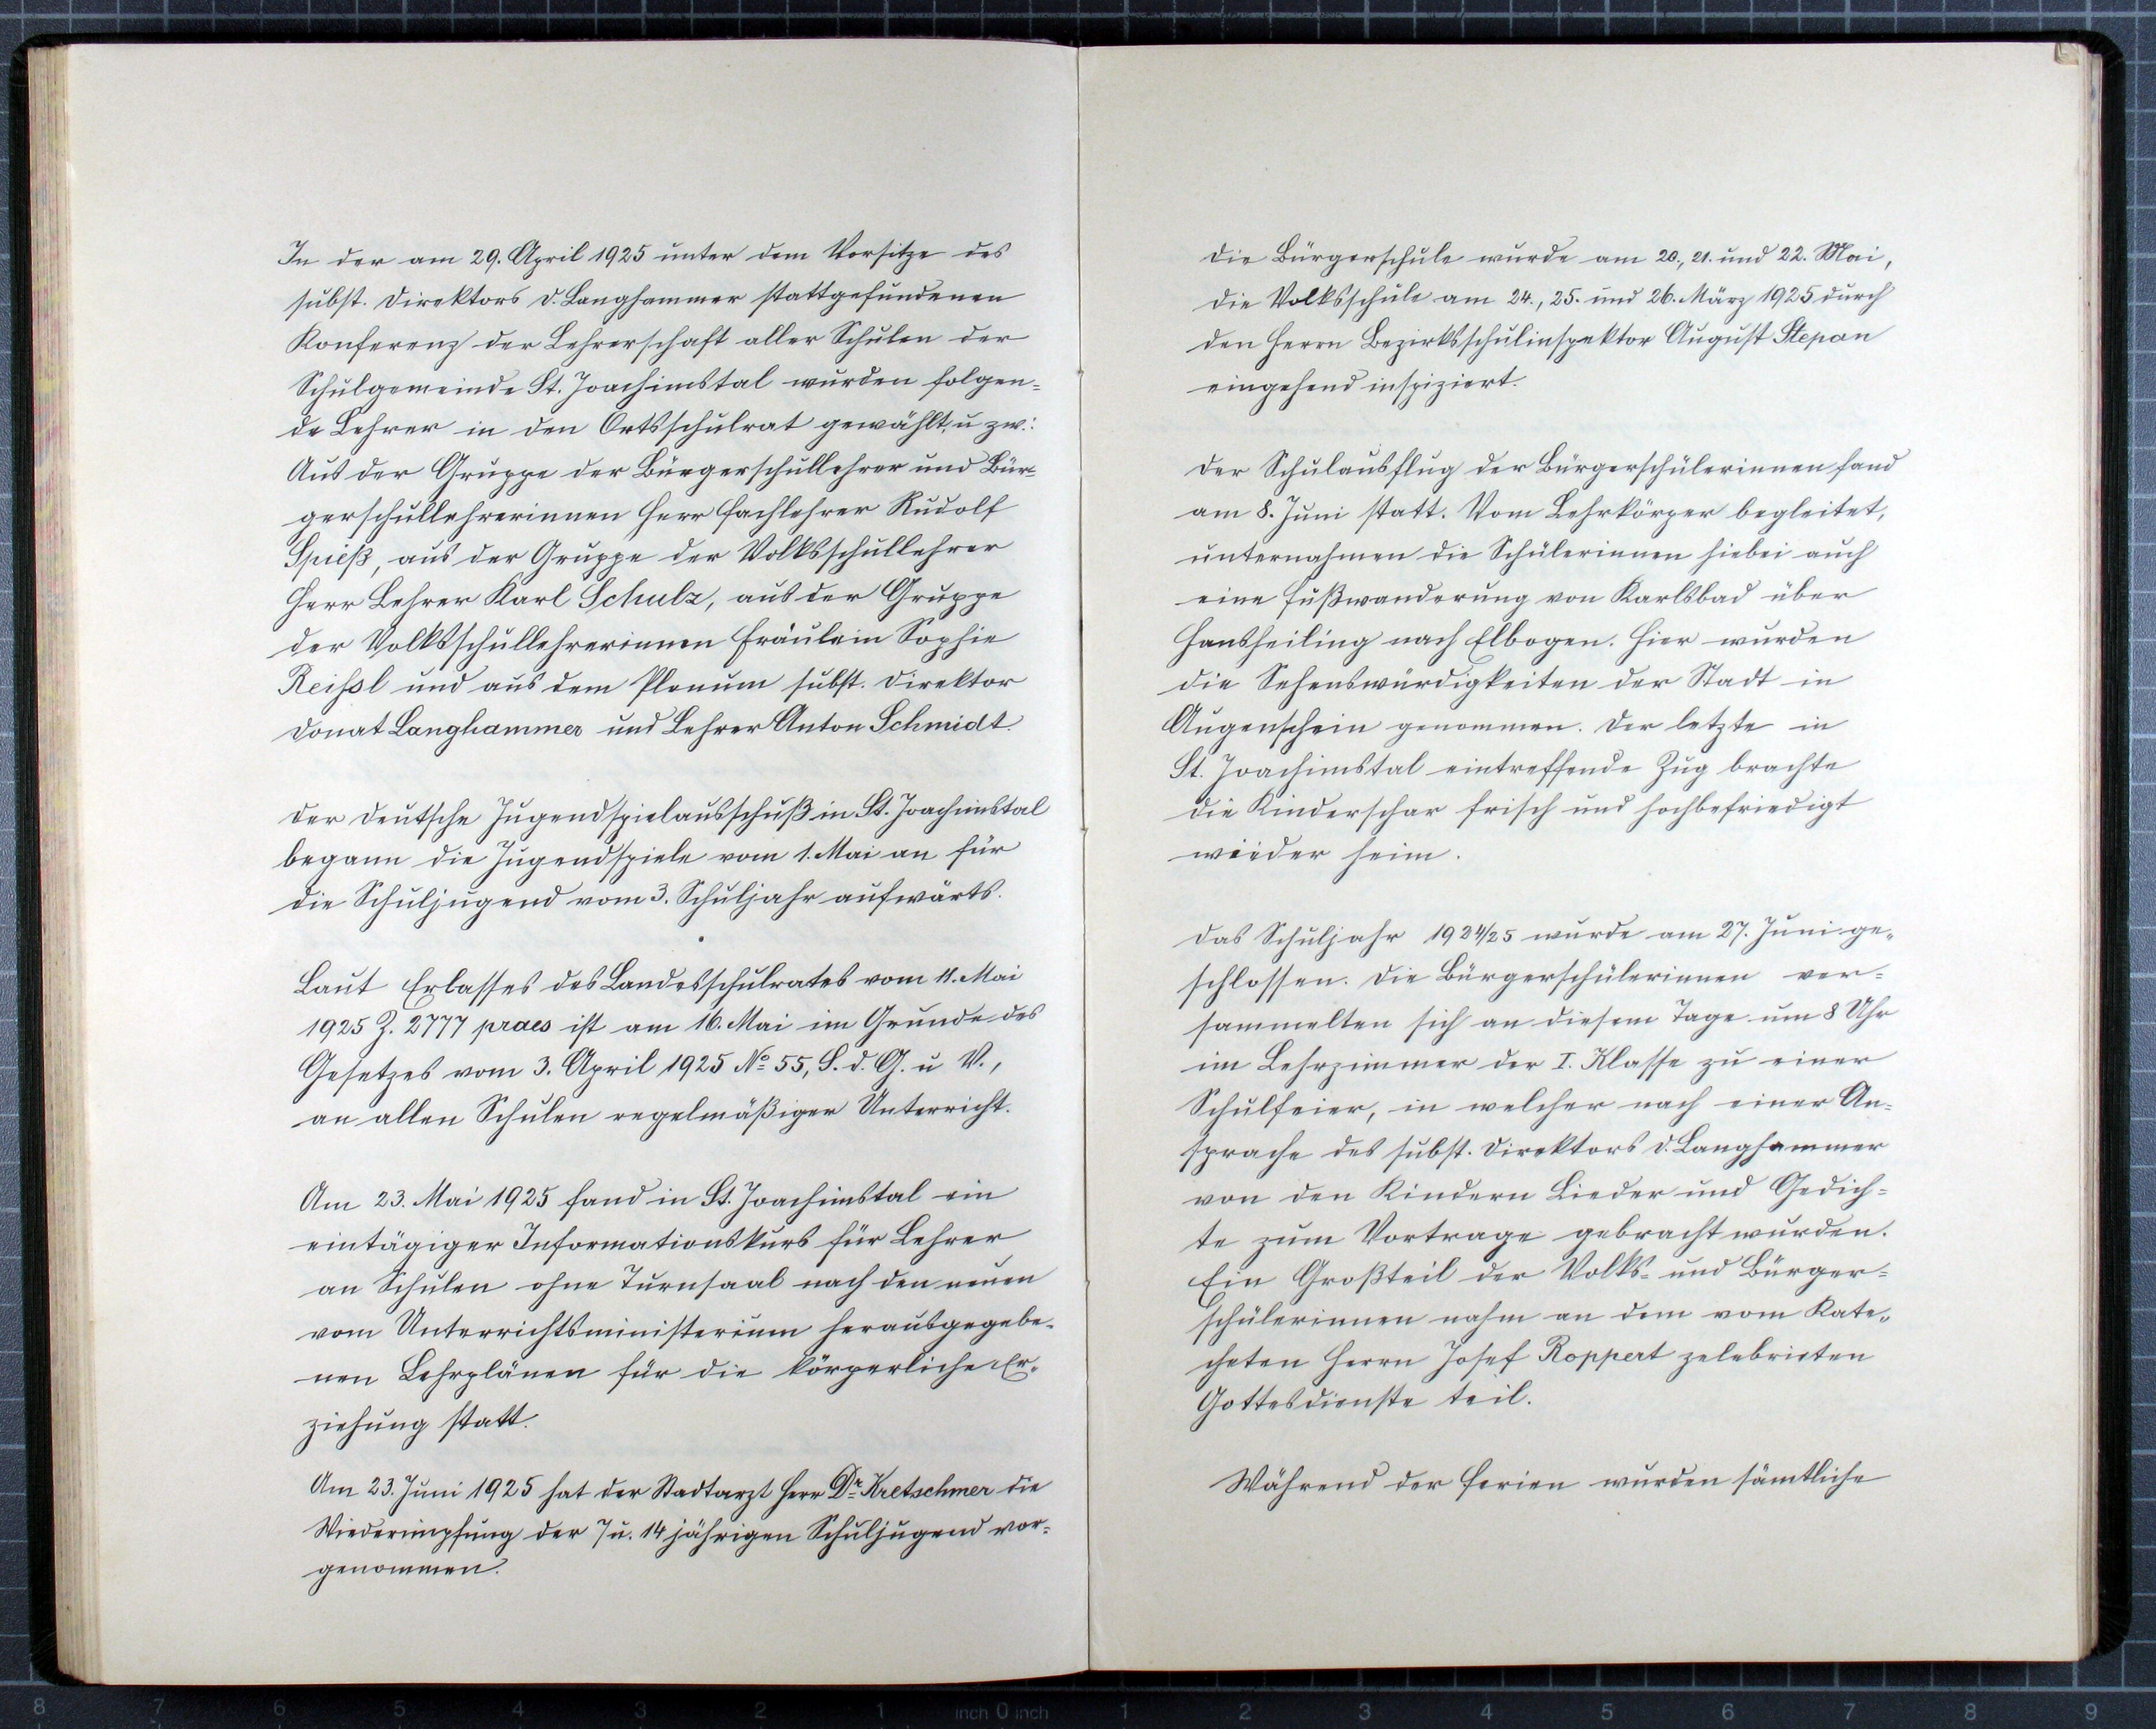 In der am 29. April 1925 unter dem Vorsitze des
subst. Direktors D. Langhammer stattgefundenen
Konferenz der Lehrerschaft aller Schulen der
Schulgemeinde St. Joachimstal wurden folgen=
de Lehrer in den Ortsschulrat gewählt, u zw.:
Aus der Gruppe der Bürgerschullehrer und Bür=
gerschullehrerinnen Herr Fachlehrer Rudolf
Spieß, aus der Gruppe der Volksschullehrer
Herr Lehrer Karl Schulz, aus der Gruppe
der Volksschullehrerinnen Fräulein Sophie
Reissl und aus dem Plenum subst. Direktor
Donat Langhammer und Lehrer Anton Schmidt.
Der deutsche Jugendspielausschuß in St. Joachimstal
begann die Jugendspiele vom 1. Mai an für
die Schuljugend vom 3. Schuljahr aufwärts.
Laut Erlasses des Landesschulrates vom 11. Mai
1925 Z. 2777 praes ist am 16. Mai im Grunde des
Gesetzes vom 3. April 1925 No 55, S. d. G. u V.,
an allen Schulen regelmäßiger Unterricht.
Am 23. Mai 1925 fand in St. Joachimstal ein
eintägiger Informationskurs für Lehrer
an Schulen ohne Turnsaal nach den neuen
vom Unterrichtsministerium herausgegebe=
nen Lehrplänen für die körperliche Er=
ziehung statt.
Am 23. Juni 1925 hat der Stadtarzt Herr Dr Kretschmer die
Wiederimpfung der 7 u. 14 jährigen Schuljugend vor=
genommen.
Die Bürgerschule wurde am 20., 21. und 22. Mai,
die Volksschule am 24., 25. und 26. März 1925 durch
den Herrn Bezirksschulinspektor August Stepan
eingehend inspiziert.
Der Schulausflug der Bürgerschülerinnen fand
am 8. Juni statt. Vom Lehrkörper begleitet,
unternahmen die Schülerinnen hiebei auch
eine Fußwanderung von Karlsbad über
Hansheiling nach Elbogen. Hier wurden
die Sehenswürdigkeiten der Stadt in
Augenschein genommen. Der letzte in
St. Joachimstal eintreffende Zug brachte
die Kinderschar frisch und hochbefriedigt
wieder heim.
Das Schuljahr 1924/25 wurde am 27. Juni ge=
schlossen. Die Bürgerschülerinnen ver=
sammelten sich an diesem Tage um 8 Uhr
im Lehrzimmer der I. Klasse zu einer
Schulfeier, in welcher nach einer An=
sprache des subst. Direktors D. Langhammer
von den Kindern Lieder und Gedich=
te zum Vortrage gebracht wurden.
Ein Großteil der Volks- und Bürger=
schülerinnen nahm an dem vom Kate=
cheten Herrn Josef Roppert zelebrirten
Gottesdienste teil.
Während der Ferien wurden sämtliche
8 7 6 5 4 3 2 1 inch 0 inch 1 2 3 4 5 6 7 8 9